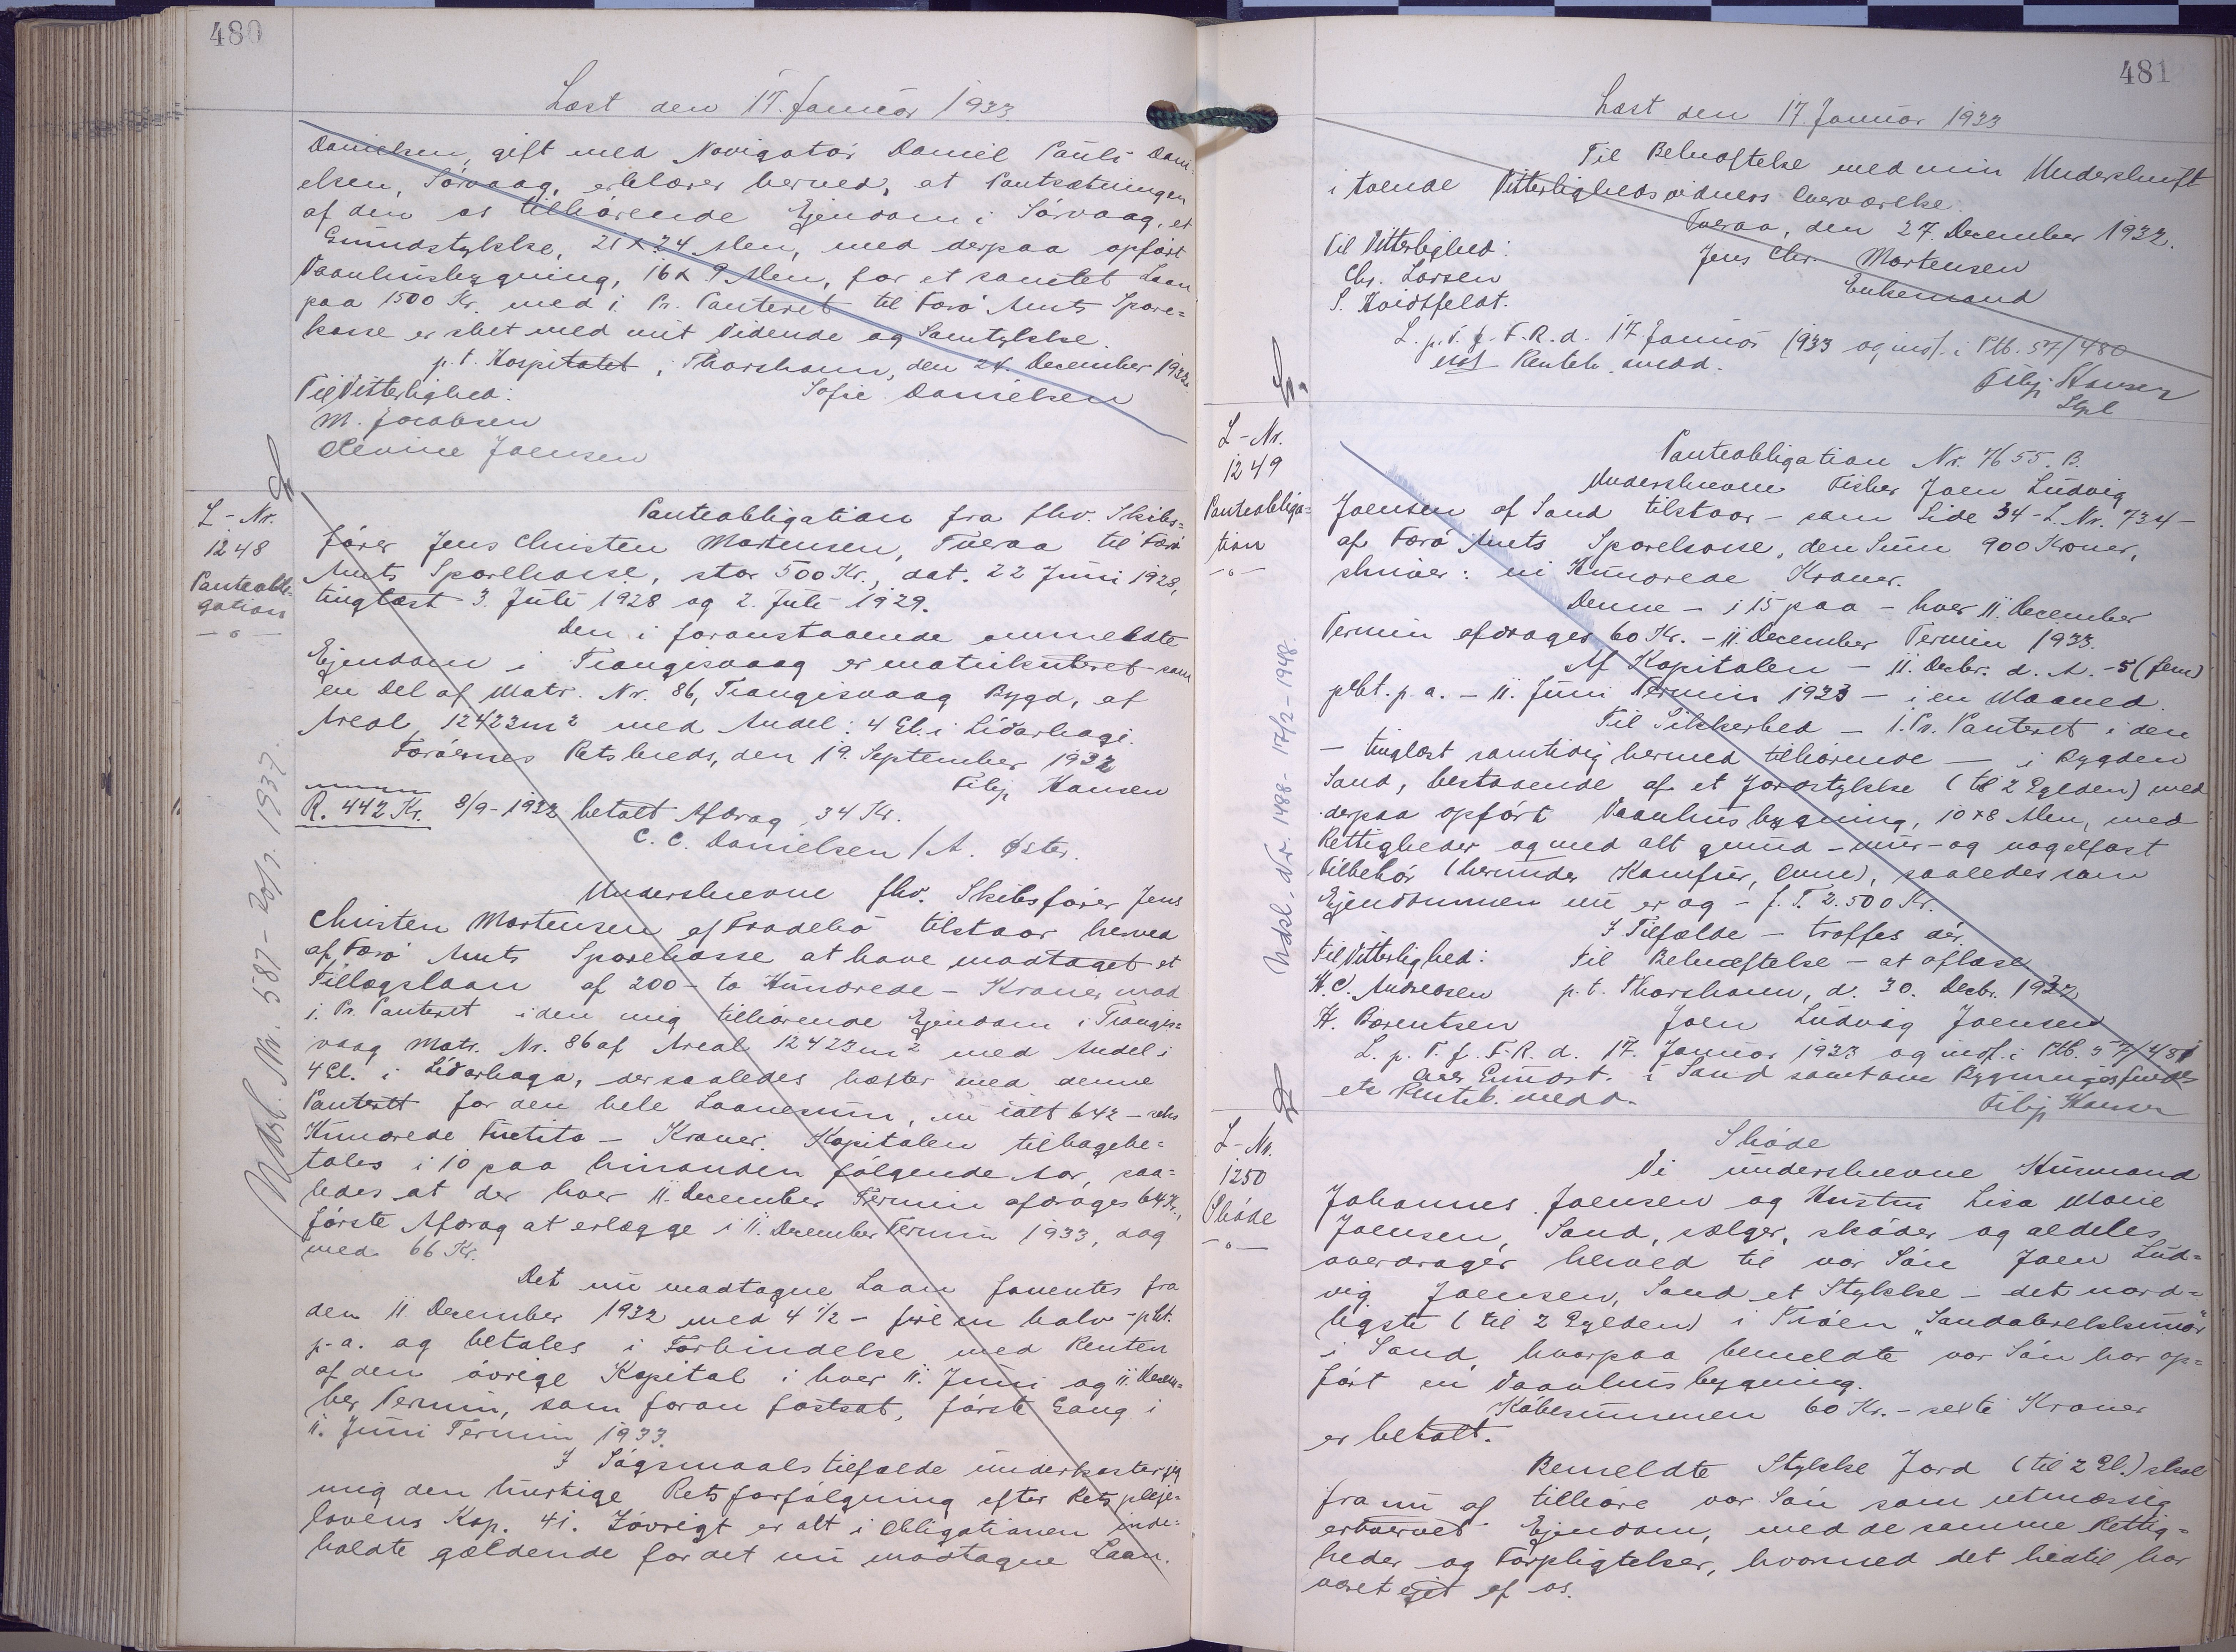 480
Læst den 17. Januar 1933
Danielsen, gift med Navigatør Daniel Pauli Dani-
elsen, Sörvaag, erklærer herved, at Pantsætningen
af den os tilhörende Ejendom i Sörvaag, et
Grundstykke, 21 x 24 Alen, med derpaa opfört
Vaanhusbygning, 16 x 9 Alen, for et samlet Laan
paa 1500 Kr. med i. Pr. Panteret til Færö Amts Spare=
kasse er sket med mit Vidende og Samtykke.
p.t. Hospitalet, Thorshavn, den 24. December 1932.
Til Vitterlighed: Sofie Danielsen
M. Jacobsen
Olevine Joensen
L-Nr.
1248
Panteobli-
gation
-"-
Udsl. Nr. 587 - 20/7. 1937.
Panteobligation fra fhv. Skibs=
förer Jens Christen Mortensen, Tveraa til Færö
Amts Sparekasse, stor 500 Kr., dat. 22 Juni 1928,
tinglæst 3. Juli 1928 og 2. Juli 1929.
Den i foranstaaende ommeldte
Ejendom i Trangisvaag er matrikuleret som
en Del af Matr. Nr. 86, Trangisvaag Bygd, af
Areal 12423 m² med Andel: 4 Gl. i Lidarhagi.
Færöernes Retskreds, den 19. September 1932
Filip Hansen
R. 442 Kr. 8/9-1932 betalt Afdrag 34 Kr.
C. C. Danielsen / A. Øster.
Underskrevne fhv. Skibsförer Jens
Christen Mortensen af Frodebö tilstaar herved
af Færö Amts Sparekasse at have modtaget et
Tillægslaan af 200 - to Hundrede - Kroner mod
i. Pr. Panteret i den mig tilhörende Ejendom i Trangis=
vaag Matr. Nr. 86 af Areal 12423 m² med Andel i
4 Gl. i Lidarhaga, der saaledes hæfter med denne
Panterett for den hele Laanesum, nu ialt 642 - seks
Hundrede Firtito - Kroner. Kapitalen tilbagebe=
tales i 10 paa hinanden fölgende Aar, saa=
ledes at der hver 11. December Termin afdrages 64 Kr.,
förste Afdrag at erlægge i 11. December Termin 1933, dog
med 66 Kr.
Det nu modtagne Laan forrentes fra
den 11. December 1932 med 4 1/2 - fire en halv - pkt.
p.a. og betales i Forbindelse med Renten
af den övrige Kapital i hver 11. Juni og 11. Decem=
ber Termin, som foran fastsat, förste Gang i
11. Juni Termin 1933.
I Sögsmaalstilfælde underkaster jeg
mig den hurtige Retsforfölgning efter Retspleje=
lovens Kap. 41. Iövrigt er alt i Obligationen inde=
holdte gældende for det nu modtagne Laan.
481
Læst den 17 Januar 1933
Til Bekræftelse med min Underskrift
i tvende Vitterlighedsvidners Overværelse.
Tveraa, den 27. December 1932.
Til Vitterlighed: Jens Chr. Mortensen
Chr. Larsen Enkemand
S. Hvidtfeldt.
L. p. T. f. F. R. d. 17 Januar 1933 og indf. i Ptb. 57/480
Rentek. medd.
Filip Hansen
L-Nr.
1249
Panteobliga=
tion
-"-
Udsl. Nr. 1488 - 17/2-1948.
Panteobligation Nr. 7655. B.
Underskrevne Fisker Joen Ludvig
Joensen af Sand tilstaar - som Side 34 - L. Nr. 734 -
af Færö Amts Sparekasse, den Sum 900 Kroner,
skriver: ni Hundrede Kroner.
Denne - i 15 paa - hver 11. December
Termin afdrages 60 Kr. - 11. December Termin 1933.
Af Kapitalen - 11. Decbr. d. A. - 5 (fem)
pkt. p.a. - 11. Juni Termin 1933 - i en Maaned.
Til Sikkerhed - 1. Pr. Panteret i den
- tinglæst samtidig hermed tilhörende - i Bygden
Sand, bestaaende af et Jordstykke (til 2 Gylden) med
derpaa opfört Vaanhusbygning, 10 x 8 Alen, med
Rettigheder og med alt grund - mur - og nagelfast
Tilbehör (herunder Komfur, Ovne), saaledes som
Ejendommen nu er og - f. T. 2.500 Kr.
I Tilfælde - træffes dér
Til Vitterlighed: Til Bekræftelse - at oplæse
H. C. Andreasen p.t. Thorshavn, d. 30. Decbr. 1932
H. Berentsen Joen Ludvig Joensen
L. p. T. f. F. R. d. 17. Januar 1933 og indf. i Ptb. 57/481
i Sand samt om Bygningsfund
Rentek. medd. Filip Hansen
L-Nr.
1250
Sköde
-"-
Sköde
Vi underskrevne Husmand
Johannes Joensen og Hustru Lisa Marie
Joensen, Sand, sælger, sköder og aldeles
overdrager herved til vor Sön Joen Lud=
vig Joensen, Sand et Stykke - det nord=
ligste (til 2 Gylden) i Tröen
i Sand, hvorpaa bemeldte vor Sön har op=
fört en Vaanhusbygning.
Köbesummen 60 Kr. - seksti Kroner
er betalt.
Bemeldte Stykke Jord (til 2 Gl.) skal
fra nu af tilhöre vor Sön som retmæssig
erhvervet Ejendom, med de samme Rettig=
heder og Forpligtelser, hvormed det hidtil har
været ejet af os.